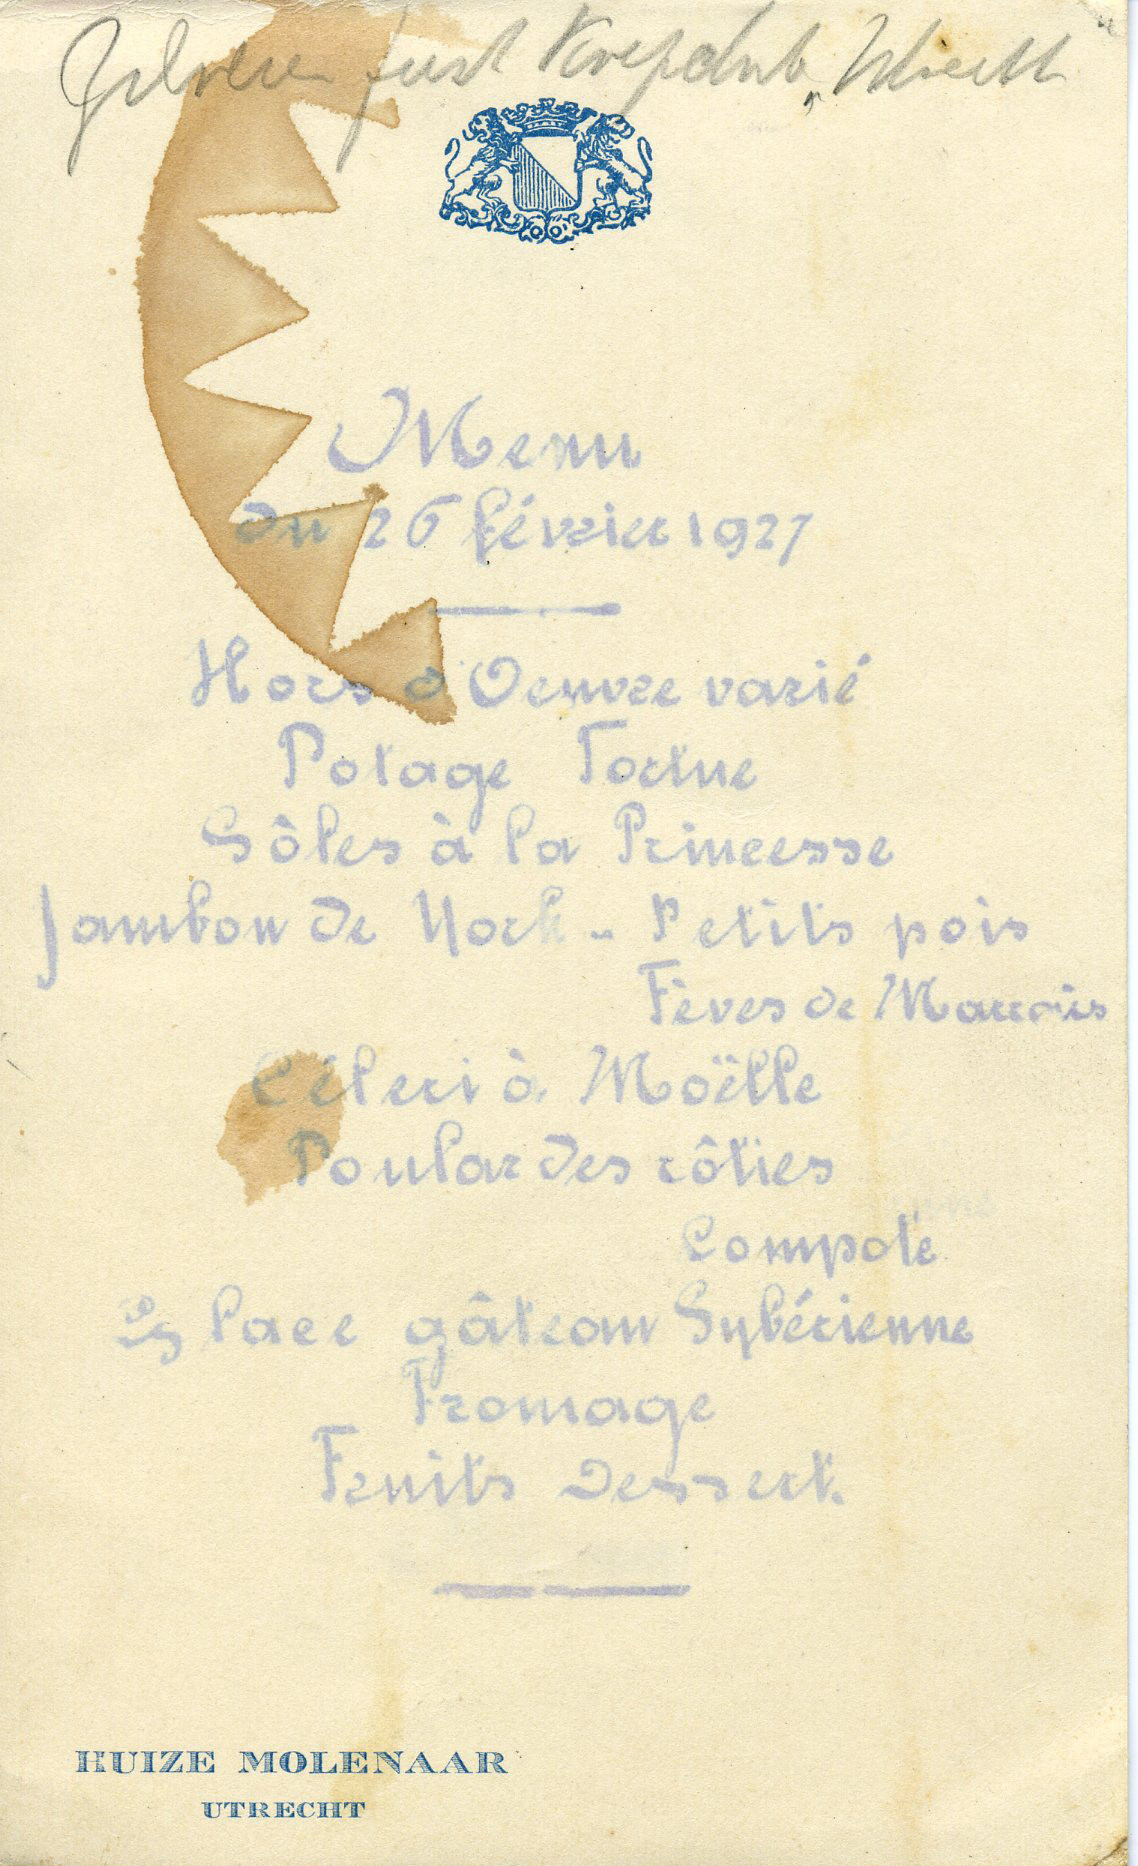 Zilveren feest Korfbalclub "Utrecht"
Menu
du 26 février 1927
Hors d'Oeuvre varié
Potage Tortue
Sôles à la Princesse
Jambon de York - Petits pois
Fèves de Marrais
Céleri à Moëlle
Poulardes rôties
Compote
Glace gâteau Sybérienne
Fromage
Fruits Dessert.
HUIZE MOLENAAR
UTRECHT